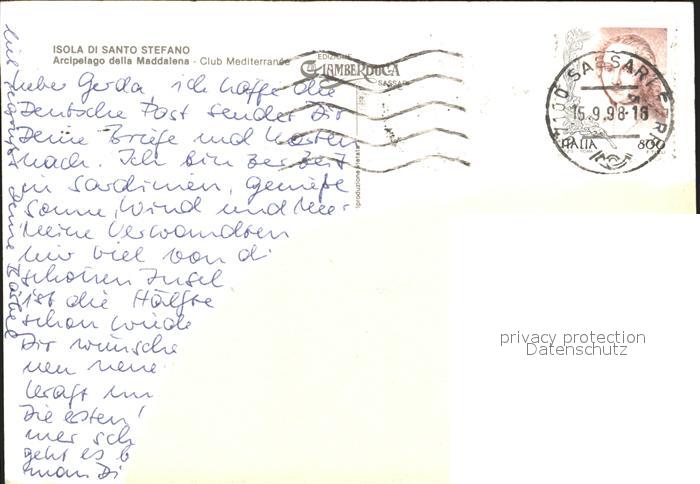 ISOLA DI SANTO STEFANO
Arcipelago della Maddalena - Club Mediterranée
EDIZIONE
GIAMBERDUCA
SASSARI
SASSARI
15.9.98-18
ITALIA 800
Lieber Gerda ich hoffe die
Deutsche Post sendet Dir
Deine Briefe und Karten
nach. Ich bin zerzeit
in Sardinien, genieße
Sonne, Wind und Meer
Meine Verwandten
mir viel von d
schönen Insel
ist die Hälfte
schon wiede
Dir wünsche
nen neue
Kraft un
Die ersten
mer sch
geht es b
man Di
riproduzione vietata
privacy protection
Datenschutz